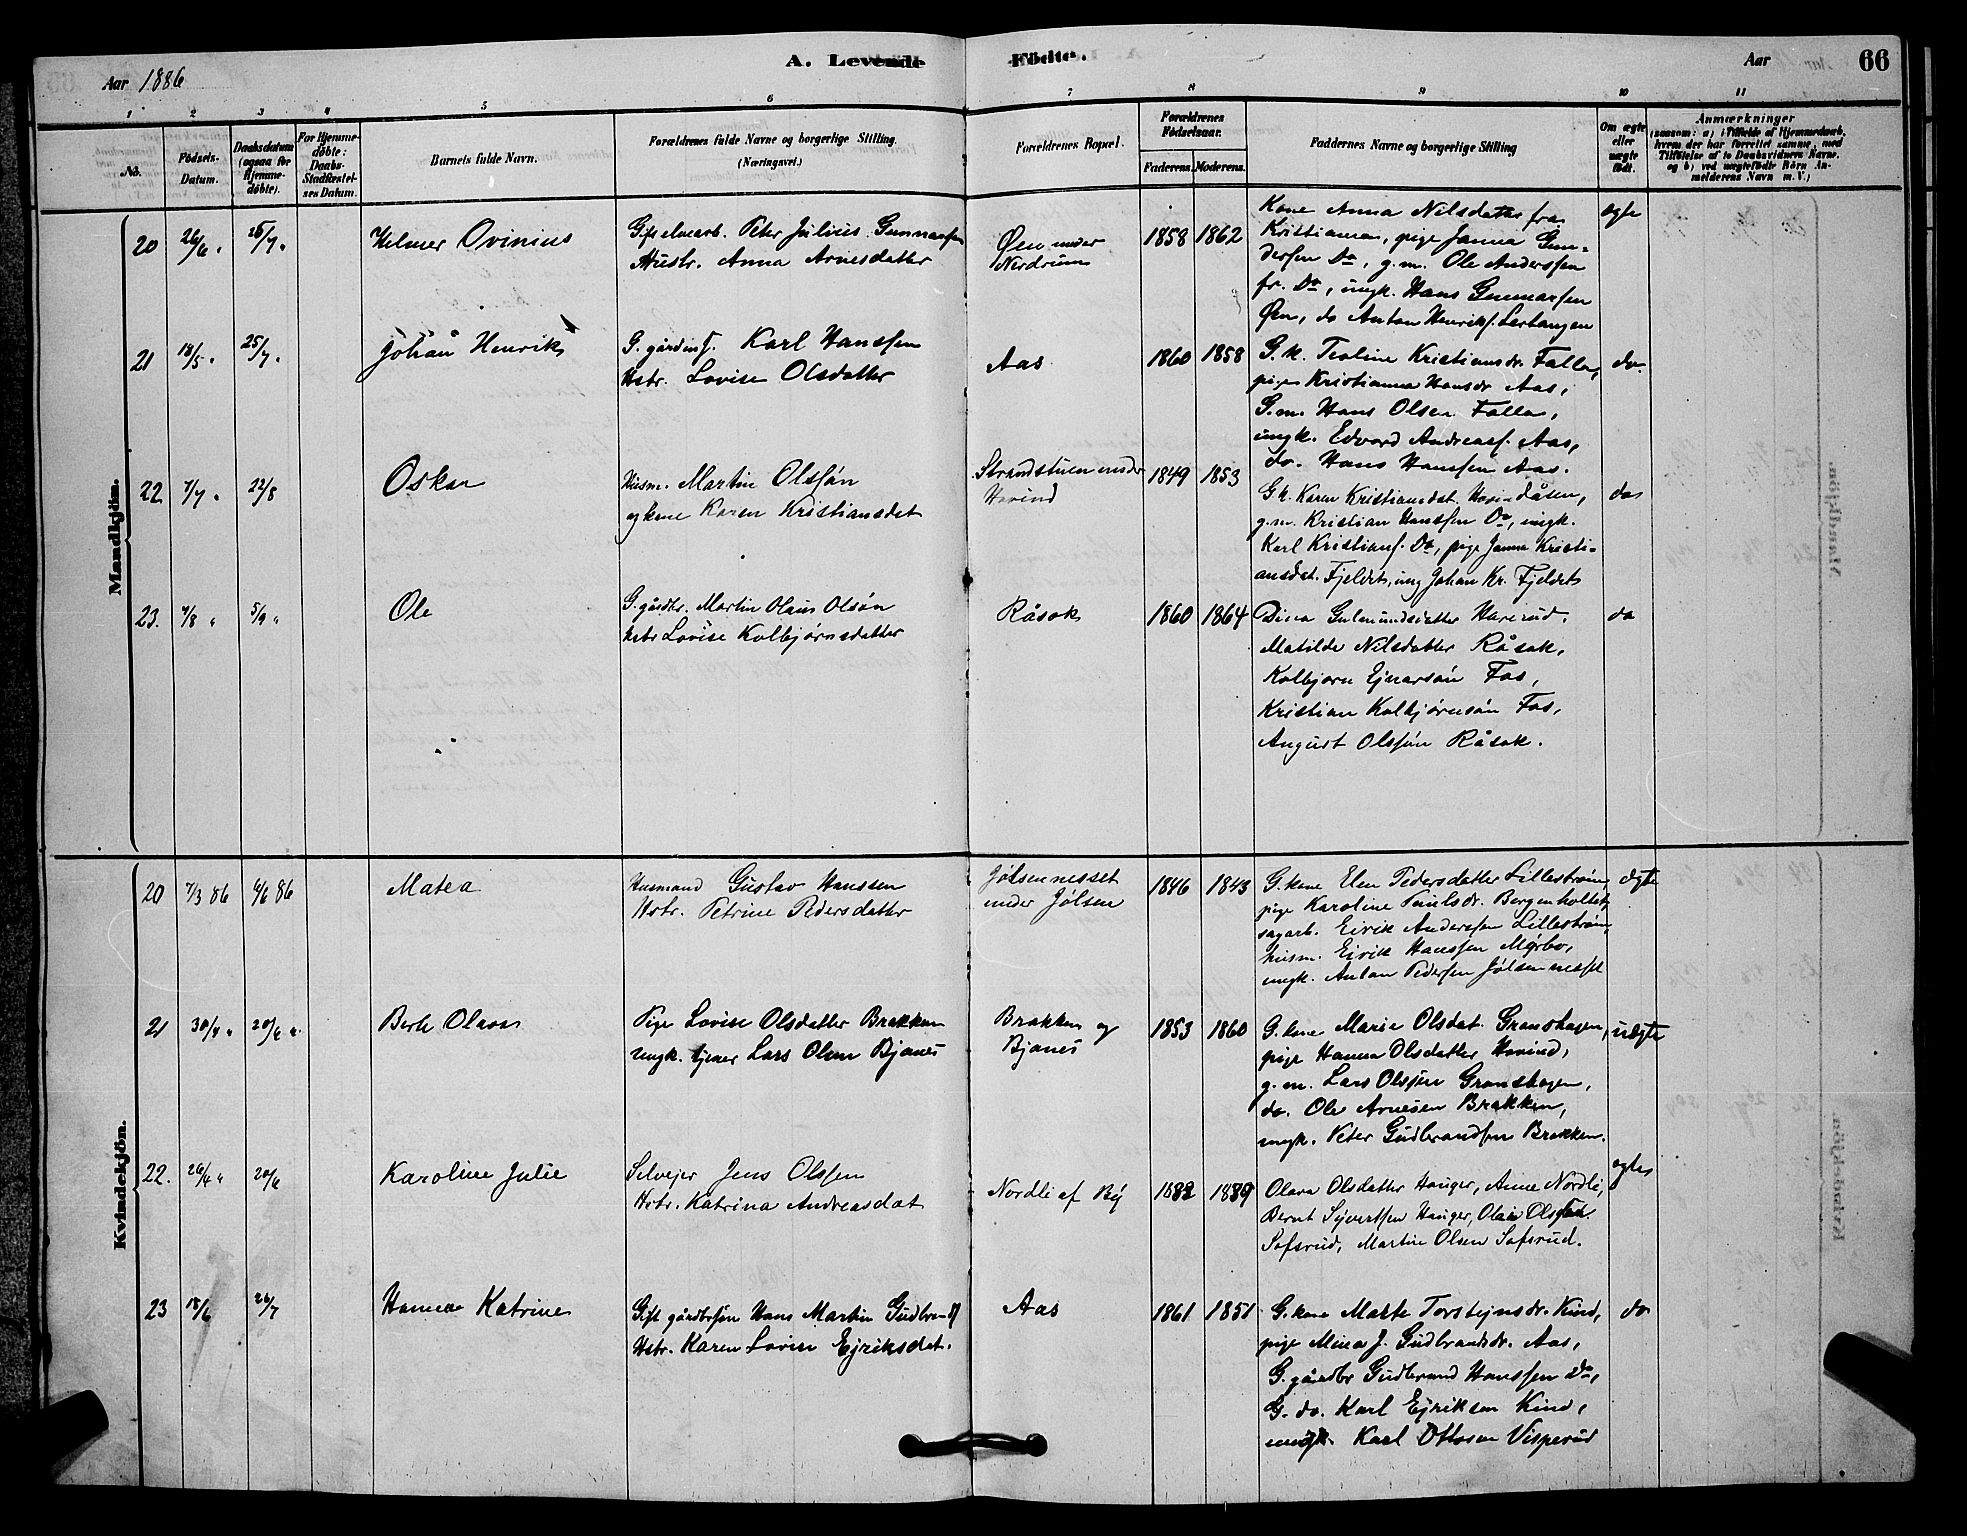 Aar 1886
A. Levende Födte.
Aar
66
1 2 3 4 5 6 7 8 9 10 11
No.
Födsels-Datum.
Daabsdatum (ogsaa for Hjemme-döbte).
For Hjemme-döbte: Daabs-Stadfæstel-ses Datum.
Barnets fulde Navn.
Forældrenes fulde Navne og borgerlige Stilling
(Næringsvei.)
Forældrenes Bopæl.
Forældrenes Födselsaar.
Faderens. Moderens.
Faddernes Navne og borgerlige Stilling
Om ægte eller uægte födt.
Anmærkninger
(saasom: a) i Tilfælde af Hjemmedaab, hvem der har forrettet samme, med Tilföielse af to Daabsvidners Navne, og b) ved uægtefödte Börn An-melderens Navn m. V.)
Mandkjön.
20 26/6 „ 25/7 „ Hilmer Ovinius
Gift elvearb. Peter Julius Gunnarsen
Hustr. Anna Arnesdatter
Øen under
Nerdrum
1858 1862
Kone Anna Nilsdatter fra
Kristiania, pige Janna Gun-
dersen Do, g.m. Ole Anderssen
fr. Do, ungk. Hans Gunnarsen
Øen, do Anton Henriks.
ægte
21 18/5 „ 25/7 „ Johan Henrik
G. Karl Hanssen
Hstr. Lovise Olsdatter
Aas
1860 1858
G.k. Teoline Kristiansdr. Falla,
pige Kristianna Hansdr Aas,
G.m. Hans Olsen Falla,
ungk. Edvard Andreass. Aas,
do. Hans Hanssen Aas.
do.
22 7/7 „ 22/8 Oskar
Husm. Martin Olssøn
og kone Karen Kristiansdat
Strandstuen under
Hovind
1849 1853
Gk. Karen Kristiansdat. Hovindåsen,
g.m. Kristian Hanssen Do, ungk.
Karl Kristians. Do, pige Janna Kristi-
ansdat. Fjeldet, ung Johan Kr. Fjeldet
do
23. 4/8 „ 5/9 „ Ole
G. gårdbr. Martin Olaus Olsøn
hstr Lovise Kolbjørnsdatter
Råsok
1860 1864
Dina Gulmundsdatter Havrud.
Matilde Nilsdatter Råsok,
Kolbjørn Ejnarsøn Fos,
Kristian Kolbjørnsøn Fos,
August Olssøn Råsok.
do
Kvindekjön.
20 7/3 86 6/6 86 Matea
Husmand Gustav Hanssen
Hstr. Petrine Pedersdatter
Jølsennesset
under Jølsen
1846 1843
G. kone Elen Pedersdatter Lillestrøm,
pige Karoline Paulsdr. Bergenholtet,
sagarb. Eirik Anderssen Lillestrøm,
husm. Eirik Hanssen Mørbo,
ungk. Anton Pedersen Jølsennesset
ægte
21 30/4 „ 20/6 „ Berte Olava
Pige Lovise Olsdatter Brakken
Ungk. tjener Lars Olsen Bjanes
Brakken og
Bjanes
1853 1860
G. kone Marie Olsdat. Granshagen,
pige Hanna Olsdatter Hovind,
g.m. Lars Olssen Granshagen,
do. Ole Arnesen Brakken,
ungk. Peter Gudbrandsen Brakken.
uægte
22. 26/4 „ 20/6 Karoline Julie
Selvejer Jens Olssen
Hstr. Katrina Andreasdat
Nordli af By
Olava Olsdatter Hauger, Anne Nordli,
Bernt Syvertsen Hauger,
Sofsrud, Martin Olsen Sofsrud.
ægte
23 18/6 26/7 Hanna Katrine
Gift gårdbrsøn Hans Martin Gudbrands
Hstr. Karen Lovise Ejriksdat.
Aas
1861 1851
G. kone Marte Torstejnsdr. Kind,
pige Mina J. Gudbrandsdr. Aas,
G. gårdbr Gudbrand Hanssen Do,
G. do. Karl Ejriksen Kind,
ungk. Karl Ottosen Visperud
do